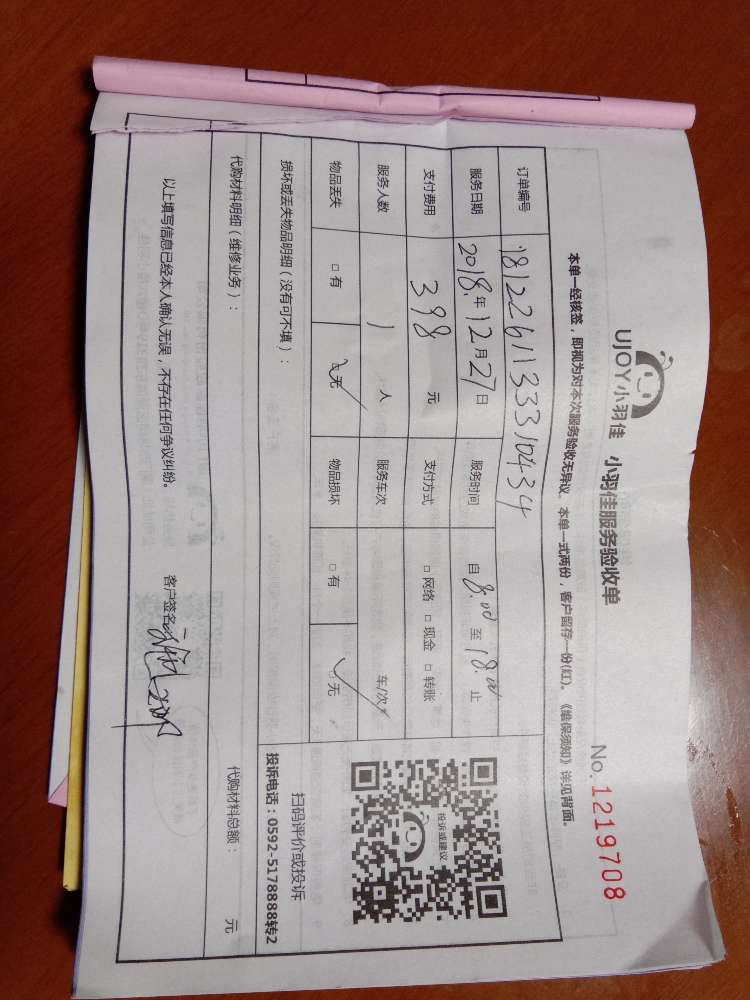 UJOY小羽佳 小羽佳服务验收单
No. 1219708
本单一经核签，即视为对本次服务验收无异议。本单一式两份，客户留存一份(红)。《维保须知》详见背面。
订单编号 18122611333310434
服务日期 2018.年12月27日 服务时间 自 8:00 至 18:00 止
支付费用 398 元 支付方式 □ 网络 □ 现金 □ 转账
服务人数 1 人 服务车次 车/次
物品丢失 □ 有 □ 无 ✓ 物品损坏 □ 有 □ 无 ✓
投诉或建议
扫码评价或投诉
投诉电话：0592-5178888转2
损坏或丢失物品明细（没有可不填）：
代购材料明细（维修业务）： 代购材料总额： 元
以上填写信息已经本人确认无误，不存在任何争议纠纷。 客户签名